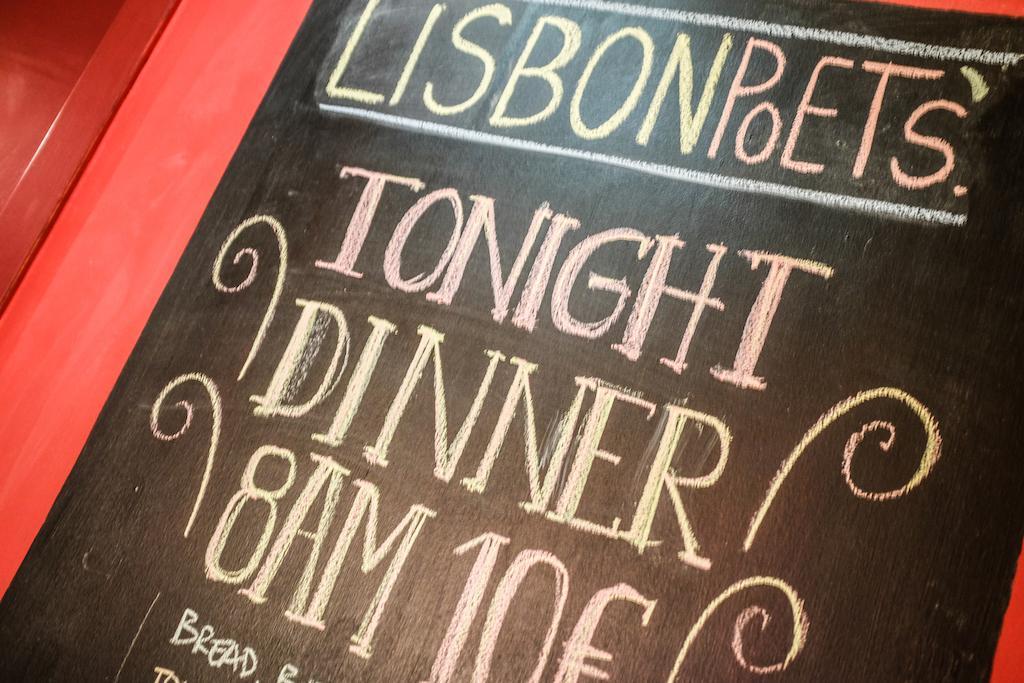 LISBONPOETS'
TONIGHT
DINNER
8AM 10€
BREAD,